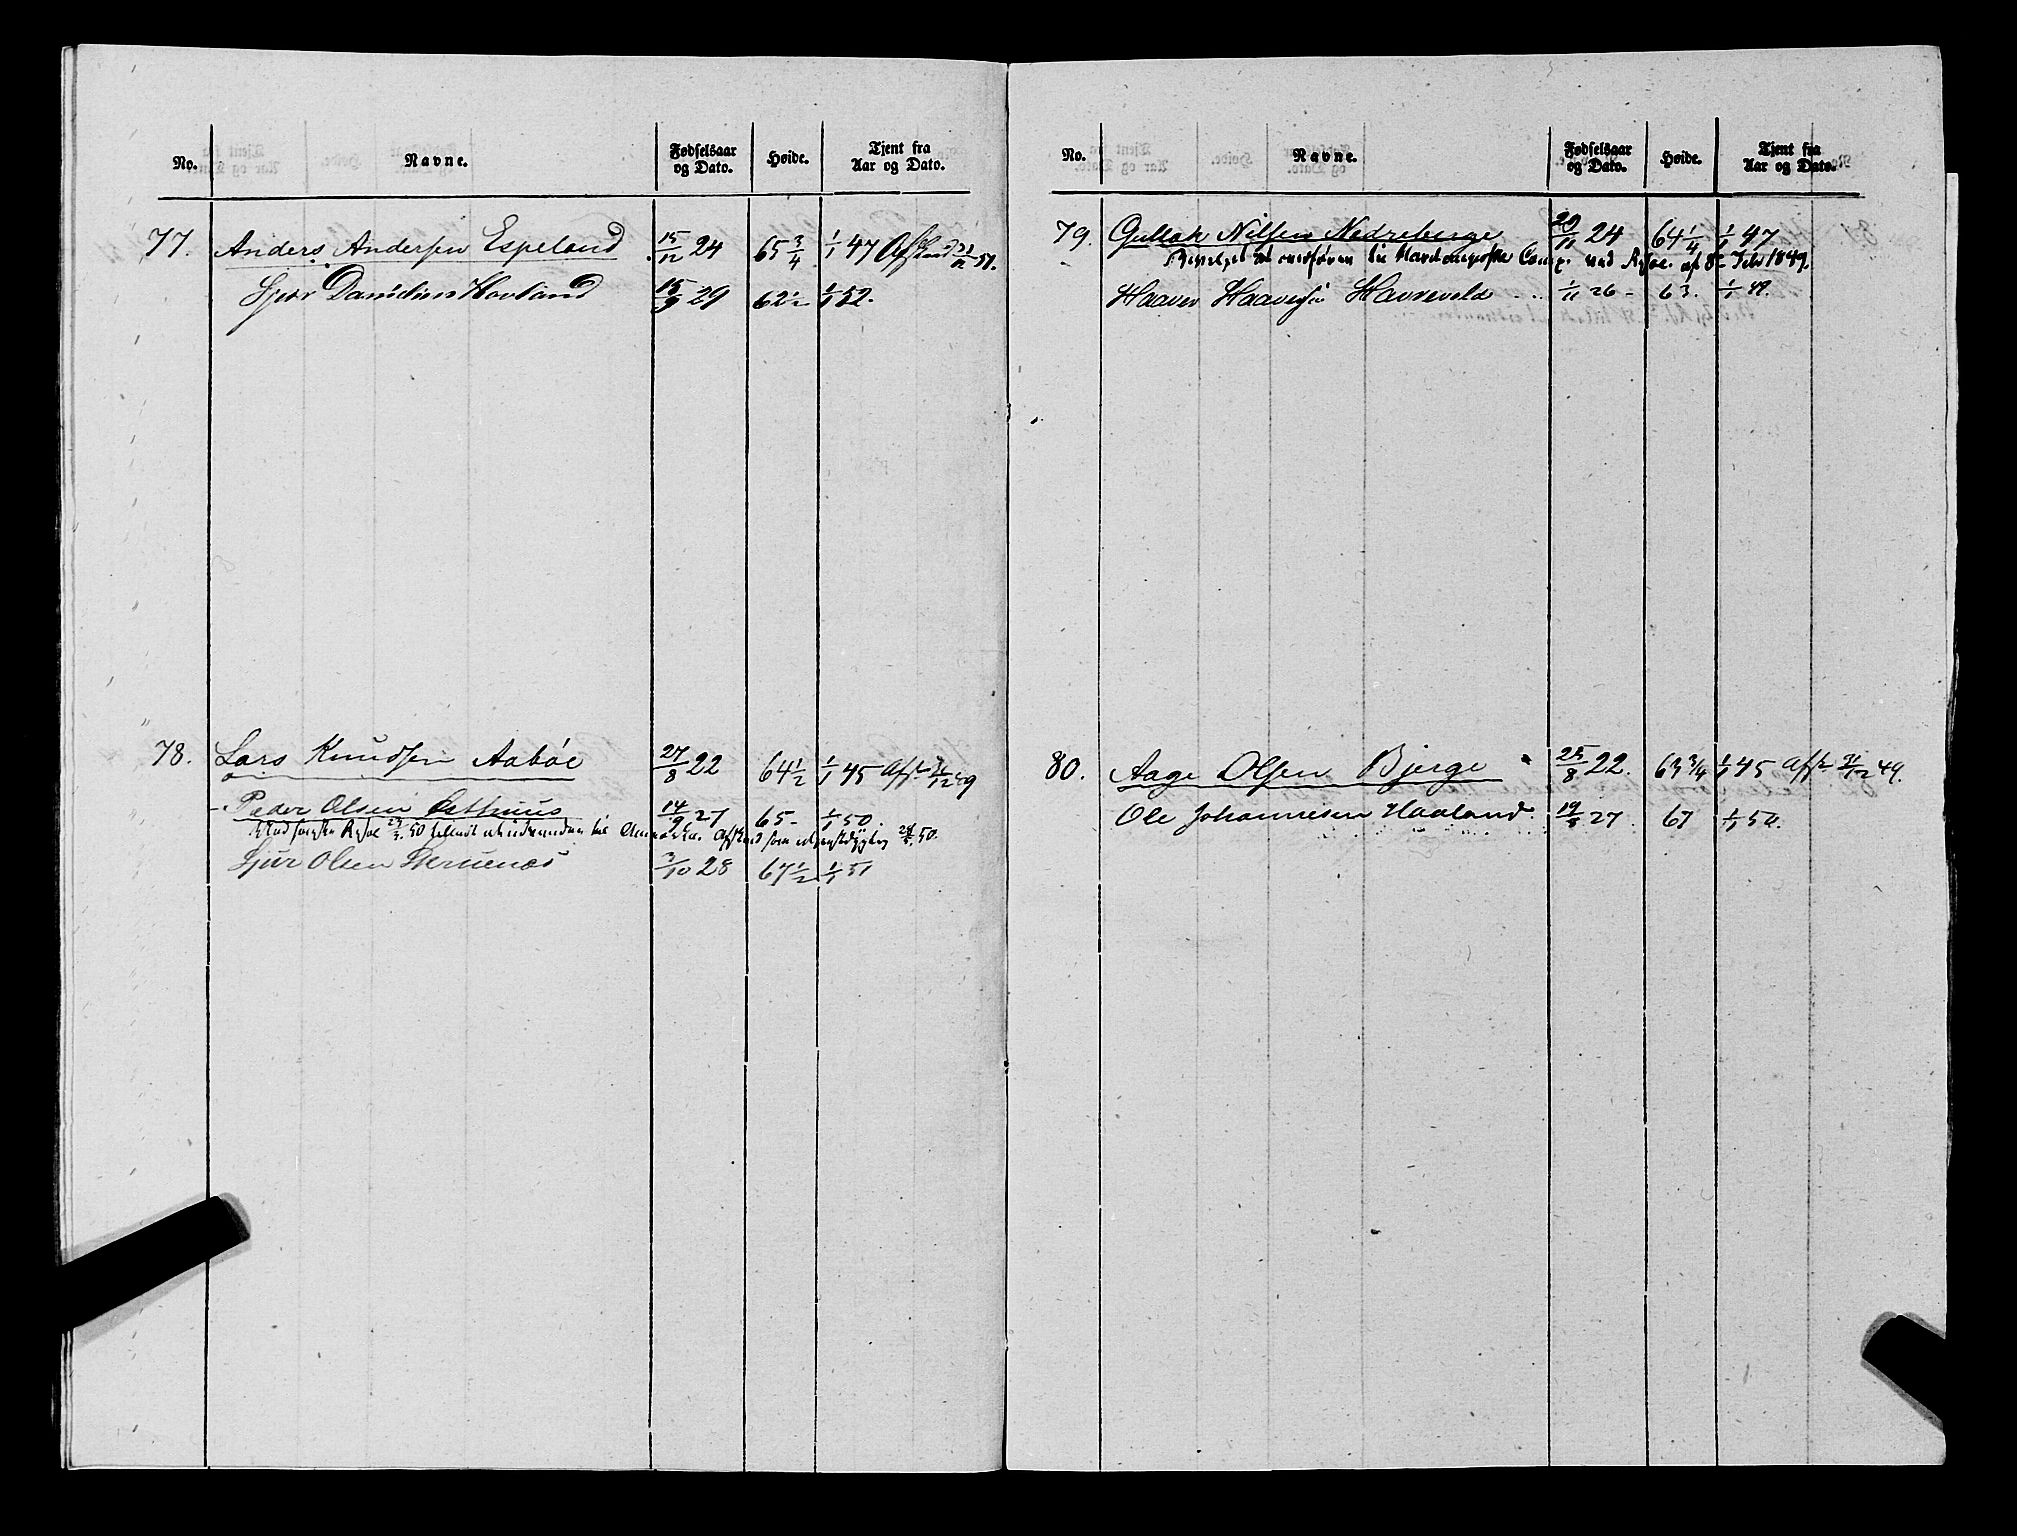 No. Navne. Fødselsaar og Dato. Høide. Tjent fra Aar og Dato.
77. Anders Andersen Espeland 15/12 24 65 3/4 1/1 47 Afskeed 31/12 51.
Sjur Danielsen Hovland 15/9 29 62 1/2 1/1 52.
78. Lars Knudsen Aabøe 27/8 22 64 1/2 1/1 45 Afsk 31/12 49
Peder Olsen Østhuus 14/9 27 65 - 1/1 50.
50 tilladt at udvandre til America. Afskeed som 50.
Sjur Olsen 3/10 28 67 1/2 1/1 51
No. Navne. Fødselsaar og Dato. Høide. Tjent fra Aar og Dato.
79. Gullak Nilsen Nedreberge 20/11 24 64 1/4 1/1 47
til Hardangerske Comp. ved af 8 Febr 1849.
Haaver Haaversen Havrevold 1/11 26 - 63. 1/1 49.
80. Aage Olsen Bjerge 25/8 22. 63 3/4 1/1 45 Afsk 31/12 49.
Ole Johannesen Haaland 19/5 27. 67 1/1 50.